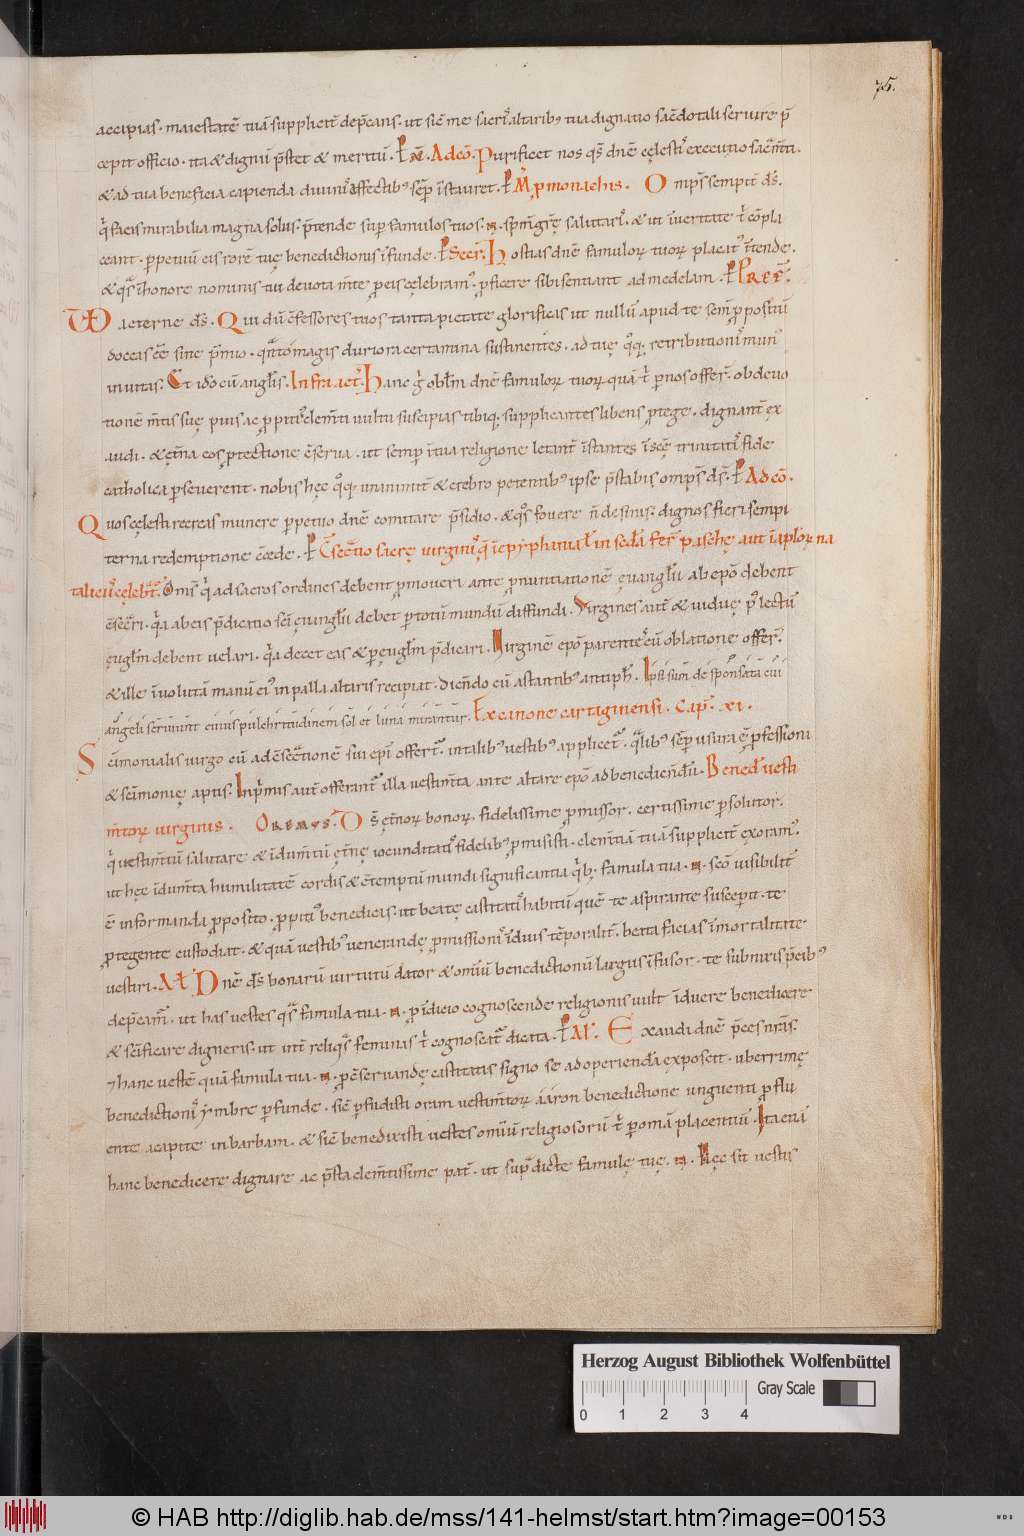 75.
accipias. maiestatē tuā supplicit̄ dep̄cans. ut sic̄ me sacri altarib; tua dignatio sac̄dotali seruire p̄
cepit officio. ita & dignū p̄stet & meritū. Ad cō. Purificet nos qs̄ dn̄e cęlesti executio sac̄m̄ti.
& ad tua beneficia capienda diuini affectib; sēp īstauret. M̄ p monachis. O mp̄s sempit̄ ds̄.
q̄ facis mirabilia magna solus. p̄tende sup famulos tuos. N. sp̄m gr̄ę salutari. & ut ī ueritate t̄ cōpla
ceant. ppetuū eis rorē tuę benedictionis īfunde. Secr̄. Hostias dn̄e famuloꝝ tuoꝝ placat' ītende.
& q̄s ī honore nominis tui deuota m̄te p eis cęlebram'. pficere sibi sentiant ad medelam. PREF̄.
VD aeterne ds̄. Qui dū c̄fessores tuos tanta pietate glorificas ut nullū apud te sem̄ p positū
doceas ēē sine p̄mio. q̄nto magis duriora certamina sustinentes. ad tuę q̄q; retributioni mun'
inuitas. Et ido cū angl̄is. Infra act̄. Hanc g̊ obl̄m dn̄e famuloꝝ tuoꝝ quā t̄ p nos offer̄. ob deuo
tionē m̄tis suę pius ac ppiti' clem̄ti uultu suscipias tibiq; supplicantes libens p tege. dignant̄ ex
audi. & ęt̄na eos ptectione c̄serua. ut semp ī tua religione letant̄ īstantes ī sc̄ę trinitati fide
catholica pseuerent. nobis hęc q̊q; unanimit̄ & crebro petentib; ipse p̄stabis omps̄ ds̄. Ad cō.
Quos cęlesti recreas munere ppetuo dn̄e comitare p̄sidio. & q̊s fouere n̄ desinis. dignos fieri sempi
terna redemptione c̄cede. C̄sec̄tio sacrę uirginū q̄ ī epyphania ł in sedā fer̄ paschę aut ī aploꝝ na
taliciis cęlebr̄t̄. Om̄s q̄ ad sacros ordines debent pmoueri ante pnuntiationē ęuangl̄ii ab epō debent
c̄sec̄ri. q̄a ab eis p̄dicatio sc̄i ęuangl̄ii debet p totū mundū diffundi. Virgines aut̄ & uiduę p' lectū
ęugl̄m debent uelari. q̄a decet eas & p ęugl̄m p̄dicari. Virginē epō parentes cū oblatione offer̄.
& ille īuolutā manū ei' in palla altaris recipiat. dicn̄do cū astantib; antiph̄. Ipsi sum desponsata cui
angeli seruiunt cuius pulchritudinem sol et luna mirantur. Ex canone cartaginensi. Cap̄. xi.
Sc̄imonialis uirgo cū ad c̄sec̄tionē sui ep̄i offert̄. in talib; uestib; applicet̄. q̄lib; sēp usura ę pfessioni
& sc̄imonię aptis. Inp̄mis aut̄ offerant̄ illa uestim̄ta ante altare epō ad benedicn̄dū. Bened̄ uesti
m̄toꝝ uirginis. OREMVS. Ds̄ ęt̄noꝝ bonoꝝ. fidelissime pmissor. certissime psolutor.
q̄ uestim̄tū salutare & idum̄tū ęt̄nę iocunditati fidelib; pmisisti. clem̄tiā tuā supplicit̄ exoram'.
ut hęc idum̄ta humilitatē cordis & c̄temptū mundi significantia q̄b; famula tua. N. sc̄o uisibilit̄
ē informanda pposito. ppiti' benedicas. ut beatę castitati habitū quē te aspirante suscepit. te
ptegente custodiat. & quā uestib; uenerandę pmissioni iduis tēporalit̄. beata facias īmortalitate
uestiri. Al Dn̄e ds̄ bonarū uirtutū dator & omiū benedictionū largus īfusor. te subnixis p̄cib;
dep̄cam̄. ut has uestes q̄s famula tua. N. p idicio cognoscende religionis uult iduere benedicere
& sc̄ificare digneris. ut int̄ reliq̄s feminas t̄ cognoscat̄ dicata. Al. Exaudi dn̄e p̄ces nr̄as.
7 hanc uestē quā famula tua. N. p c̄seruandę castitatis signo se ad operiendā exposcit. uberrimę
benedictioni ymbre pfunde. sic̄ pfudisti oram uestim̄toꝝ aaron benedictione unguenti pflu
ente a capite in barbam. & sic̄ benedixisti uestes omiū religiosorū t̄ p omā placentiū. Ita etiā
hanc benedicere dignare ac p̄sta clem̄tissime pat̄. ut sup̄dicte famulę tue. N. Hęc sit uestis
Herzog August Bibliothek Wolfenbüttel
Gray Scale
0 1 2 3 4
© HAB http://diglib.hab.de/mss/141-helmst/start.htm?image=00153